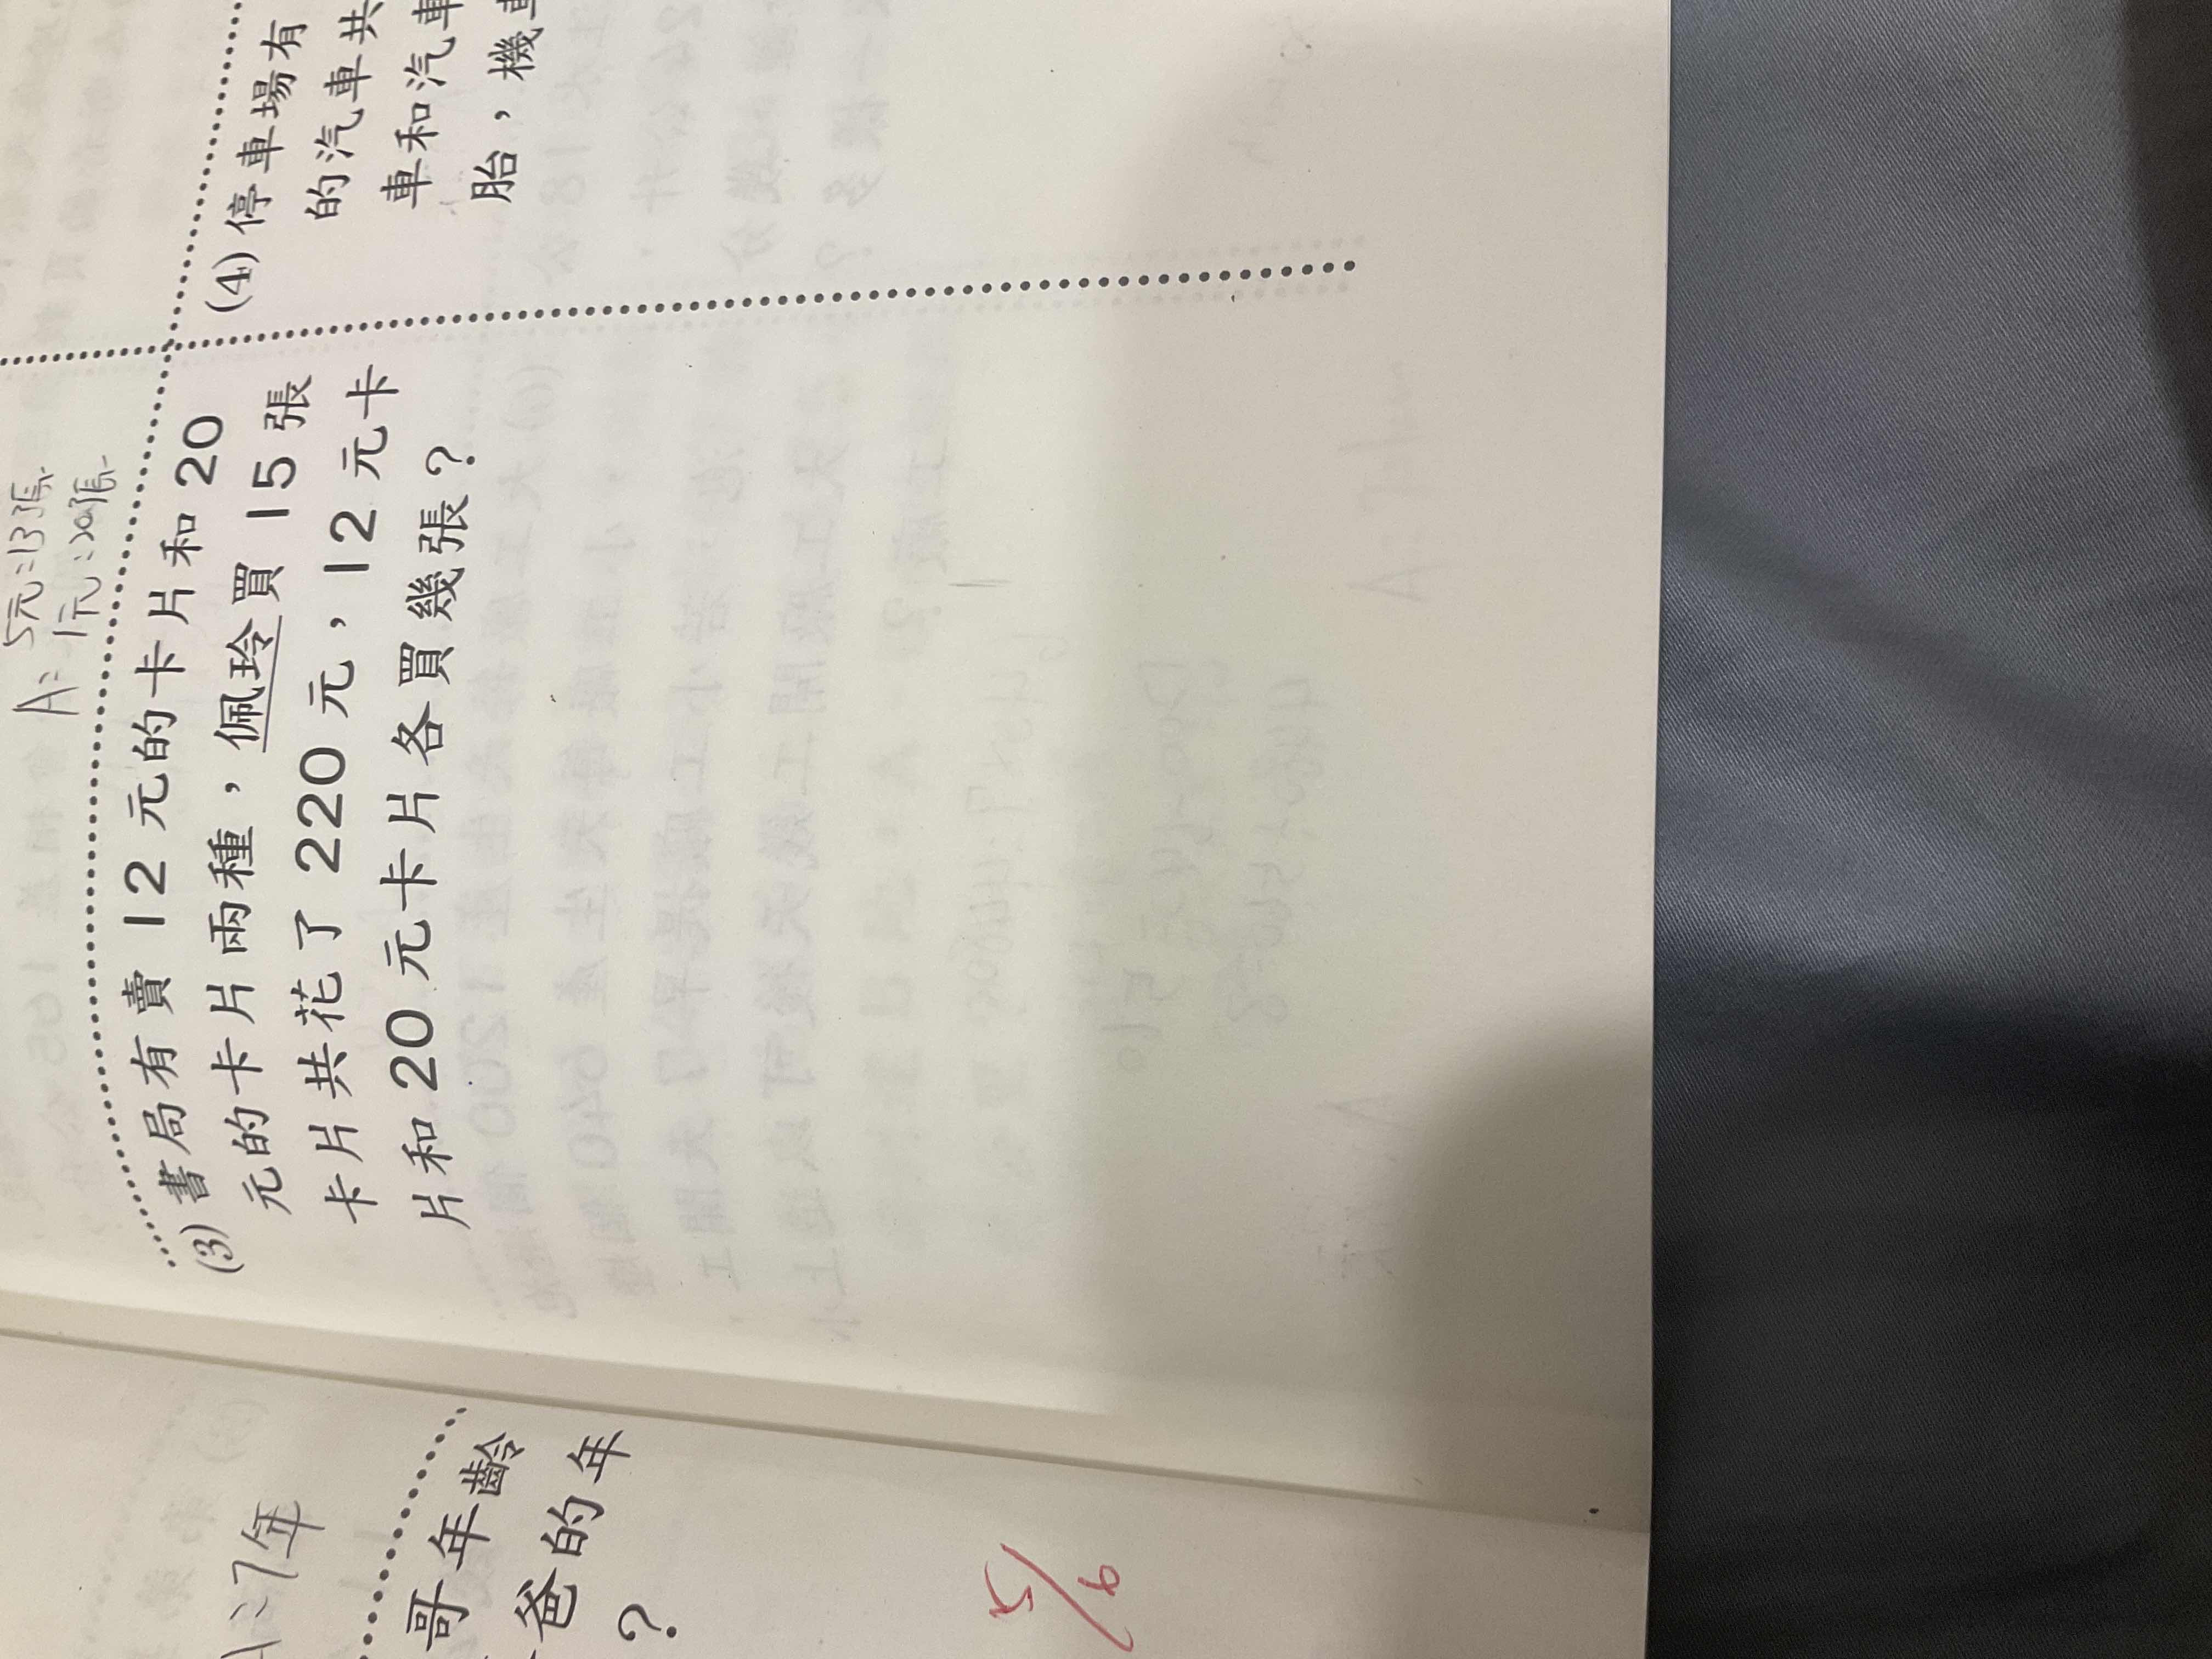 A= 5元=13張
1元=20張
(3) 書局有賣 12 元的卡片和 20
元的卡片兩種，佩玲買 15 張
卡片共花了 220 元，12 元卡
片和 20 元卡片各買幾張？
(4) 停車場有
的汽車共
車和汽車
胎，機車
A=7年
哥年齡
爸的年
？
9/5